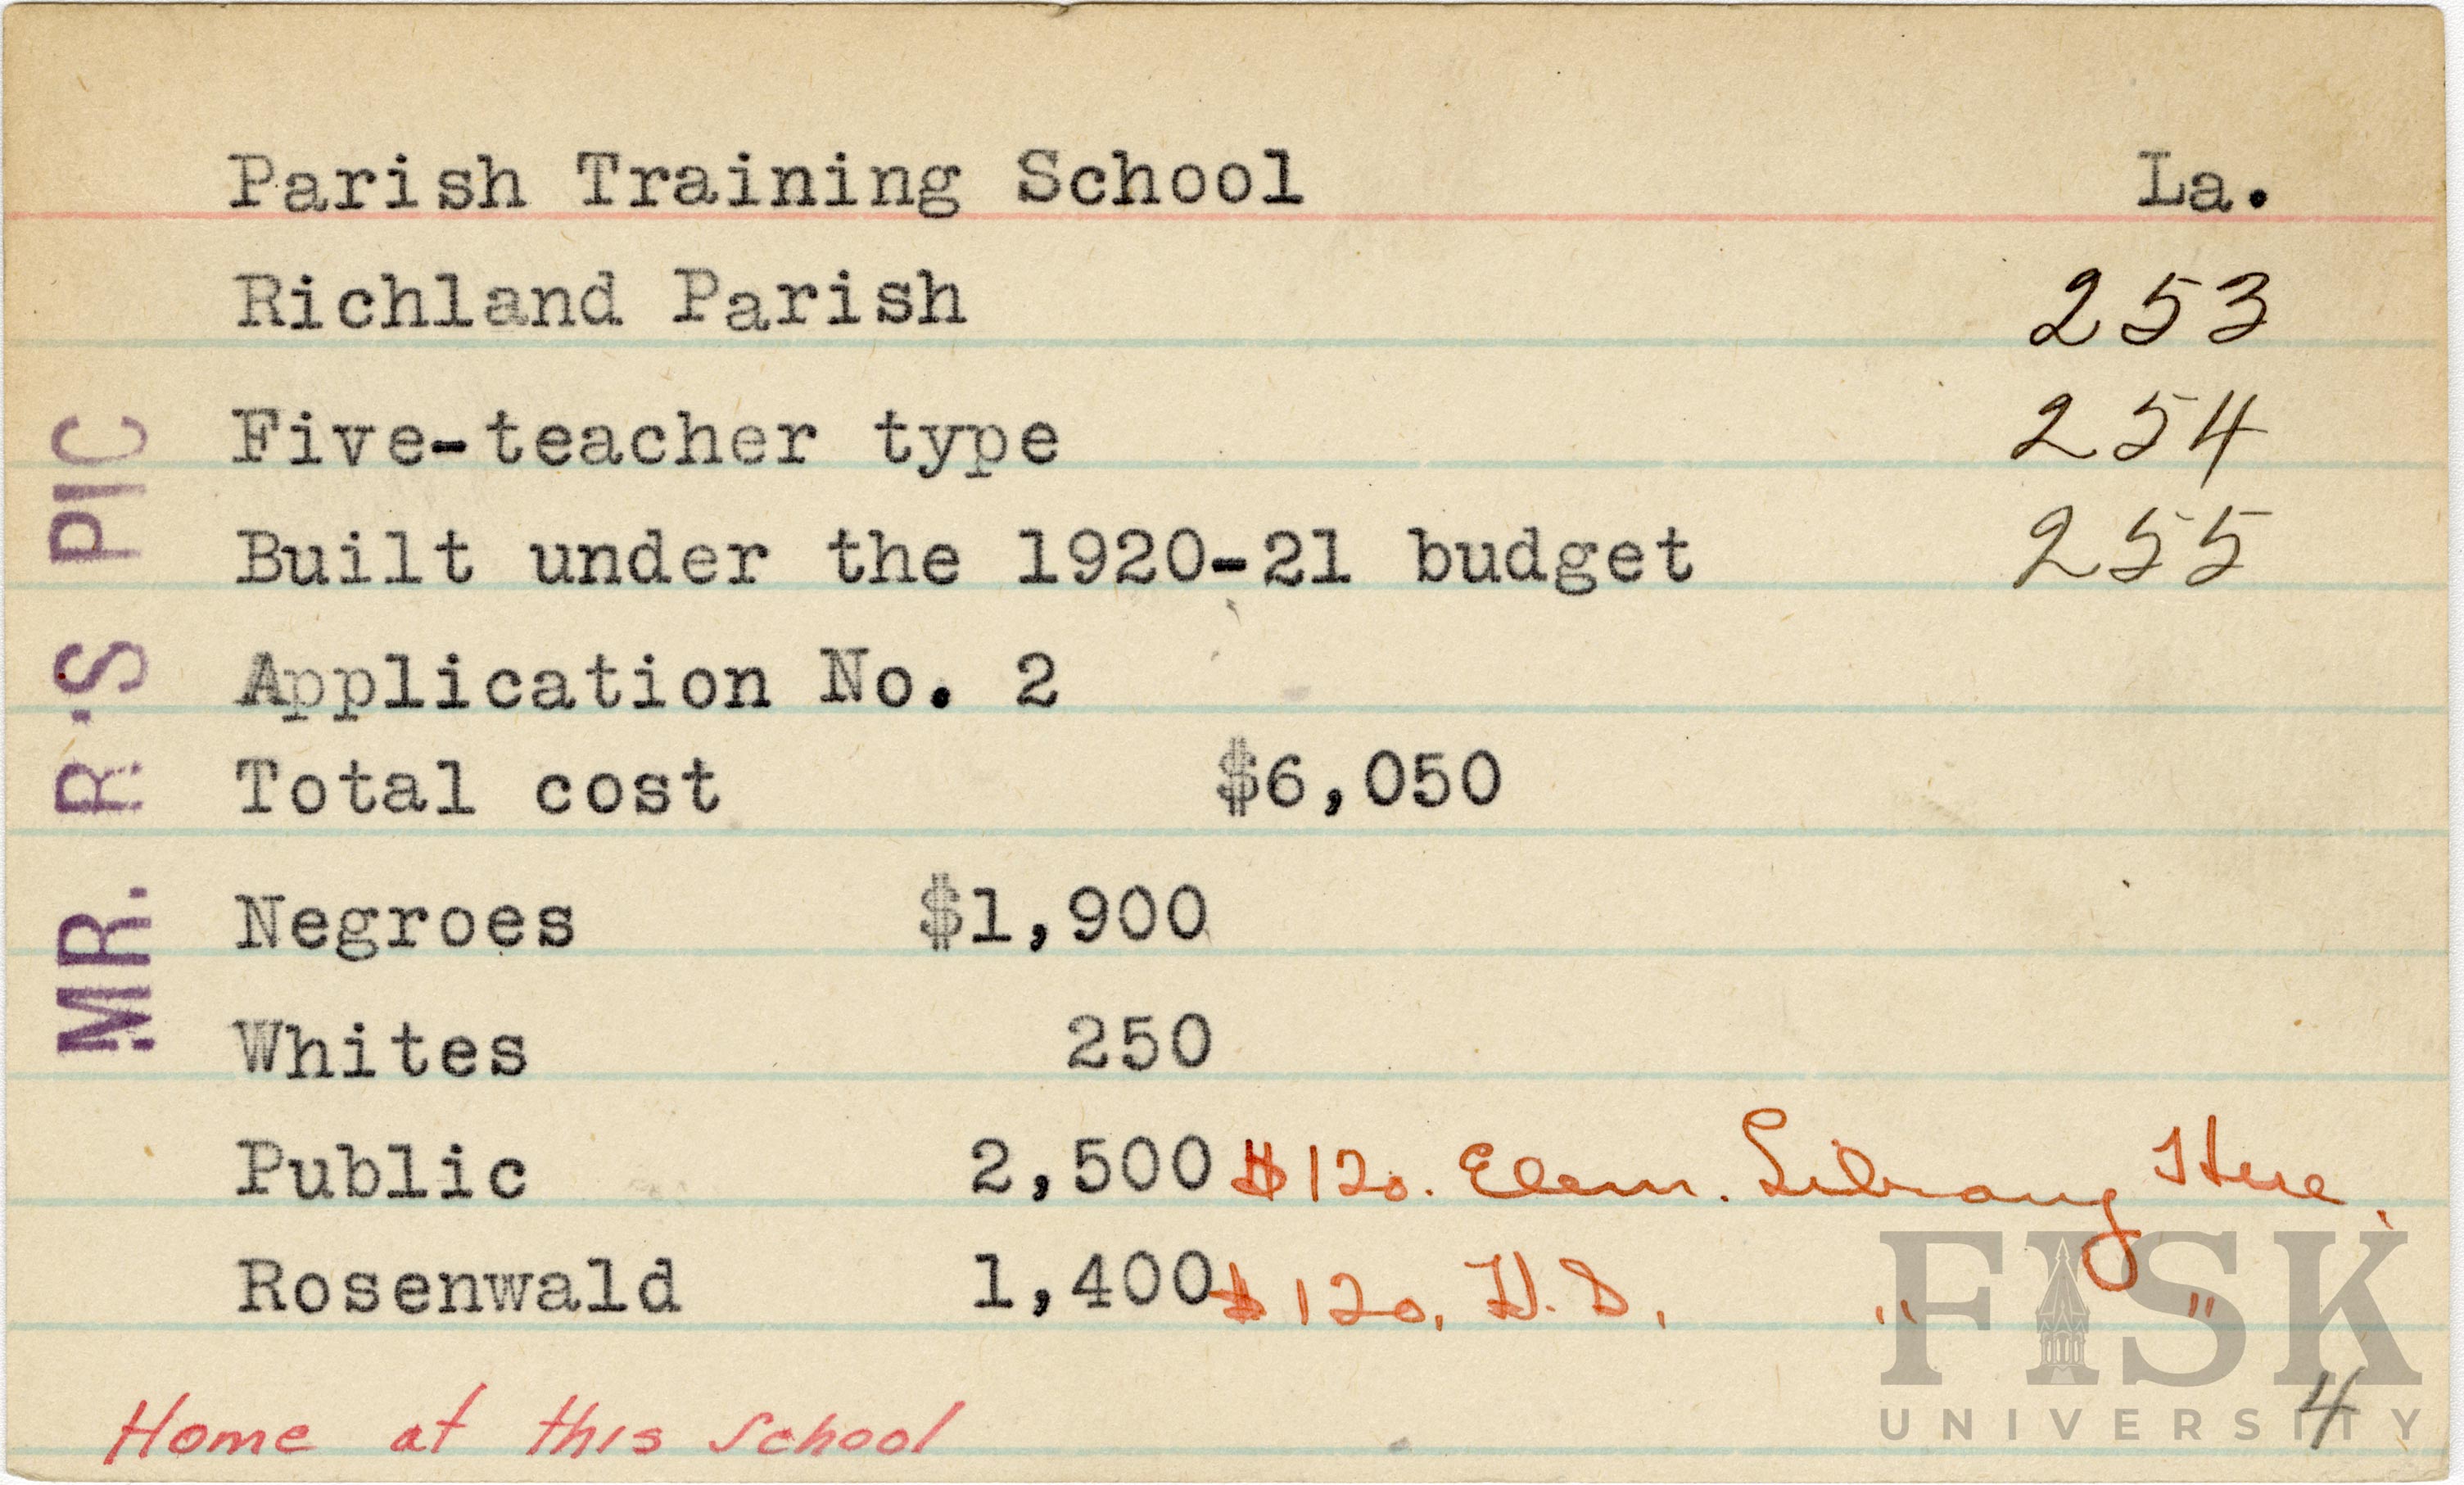 Parish Training School La.
Richland Parish 253
Five-teacher type 254
Built under the 1920-21 budget 255
Application No. 2
Total cost $6,050
Negroes $1,900
Whites 250
Public 2,500 $120. Elem. Library Here.
Rosenwald 1,400 $120. H.S. " "
Home at this School
4
MR. R'S PIC
FISK
UNIVERSITY